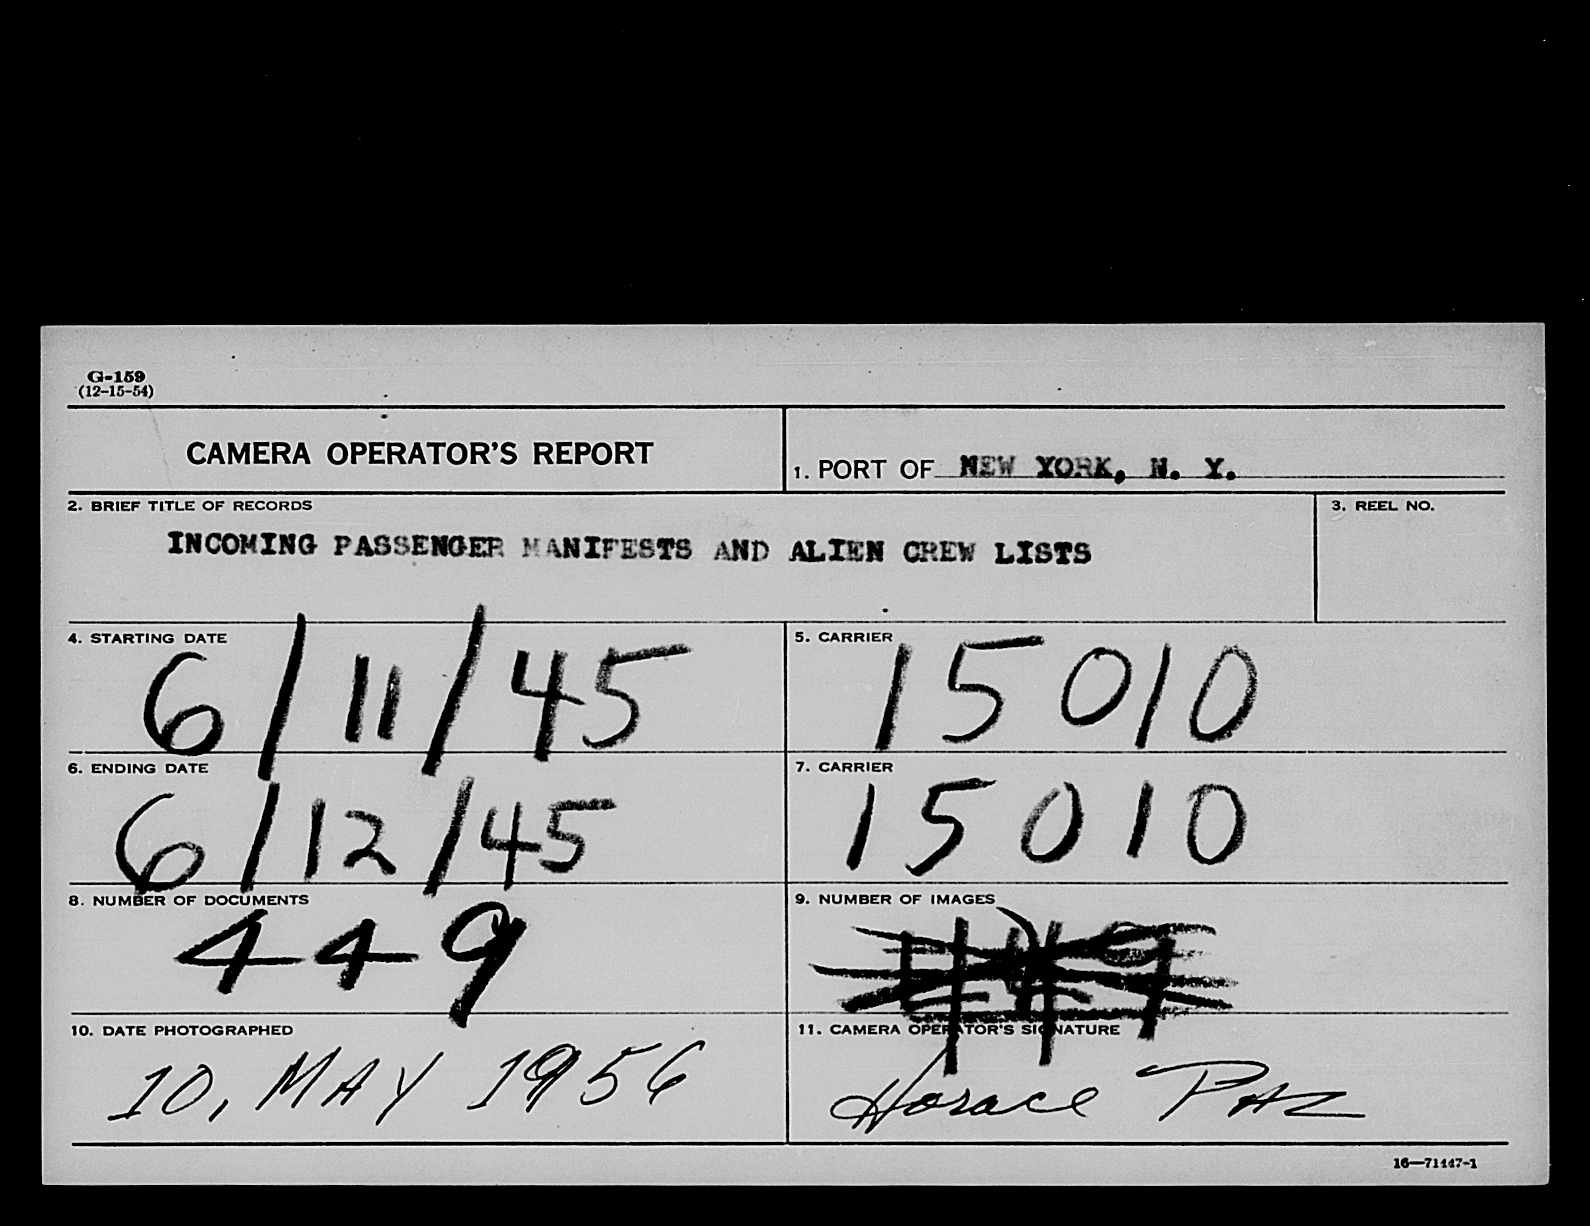 G-159
(12-15-54)
CAMERA OPERATOR'S REPORT
1. PORT OF NEW YORK, N. Y.
2. BRIEF TITLE OF RECORDS
3. REEL NO.
INCOMING PASSENGER MANIFESTS AND ALIEN CREW LISTS
4. STARTING DATE
6/11/45
5. CARRIER
15010
6. ENDING DATE
6/12/45
7. CARRIER
15010
8. NUMBER OF DOCUMENTS
449
9. NUMBER OF IMAGES
10. DATE PHOTOGRAPHED
10, MAY 1956
11. CAMERA OPERATOR'S SIGNATURE
Horace Paz
16—71447-1